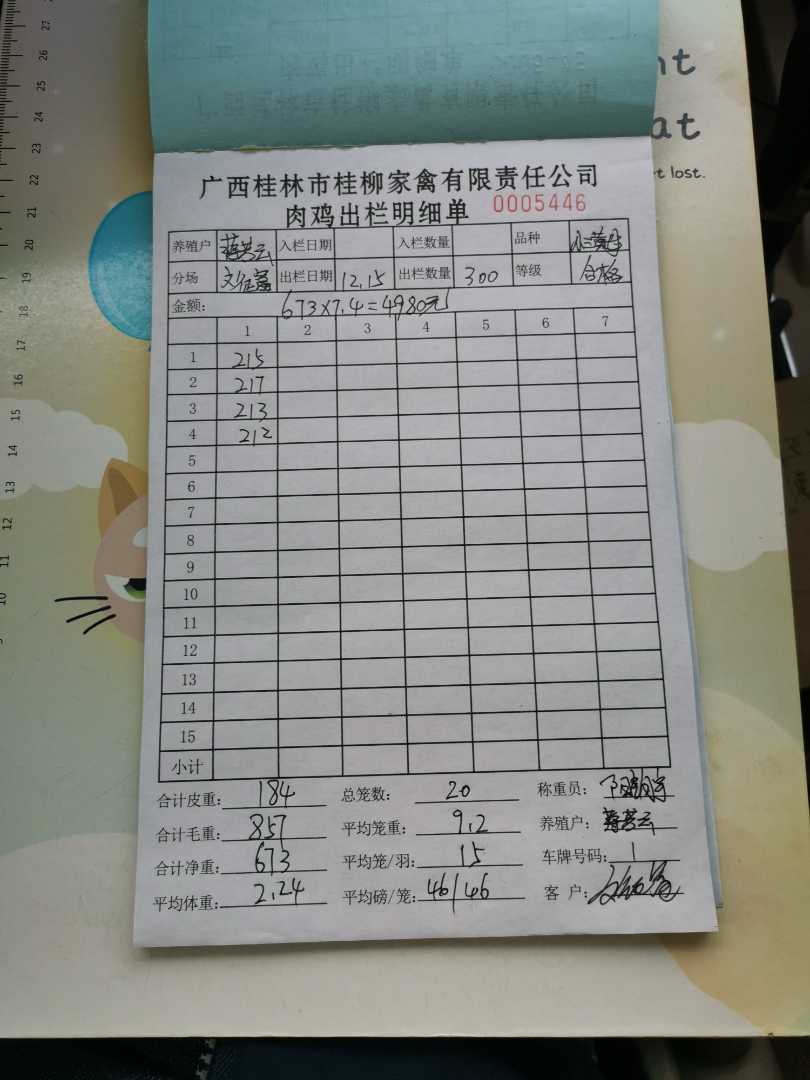 nt
at
t lost.
广西桂林市桂柳家禽有限责任公司
肉鸡出栏明细单 0005446
养殖户 蒋芳云 入栏日期 入栏数量 品种
分场 出栏日期 12.15 出栏数量 300 等级 合格
金额: 673×7.4=4980元
1 2 3 4 5 6 7
1 215
2 217
3 213
4 212
5
6
7
8
9
10
11
12
13
14
15
小计
合计皮重: 184 总笼数: 20 称重员:
合计毛重: 857 平均笼重: 9.2 养殖户: 蒋芳云
合计净重: 673 平均笼/羽: 15 车牌号码: 1
平均体重: 2.24 平均磅/笼: 46/46 客 户:
27
26
25
24
23
22
21
20
19
18
17
16
15
14
13
12
11
10